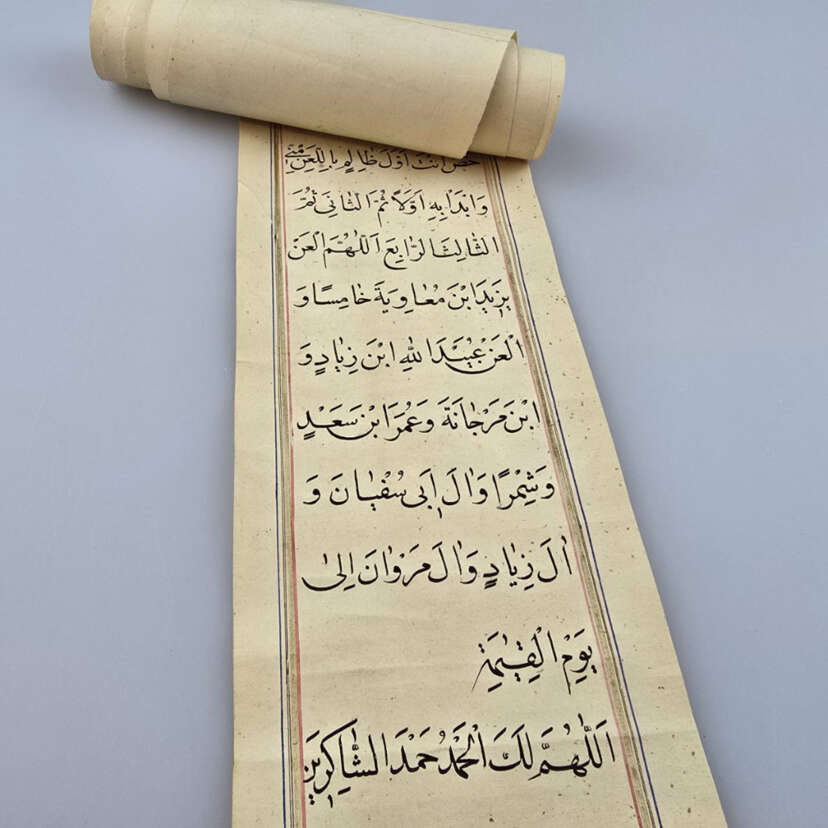 خُصَّ اَنْتَ اَوَّلَ ظٰالِمٍ بِاللَّعْنِ مِنّٖى
وَابْدَاْ بِهِ اَوَّلًا ثُمَّ الثّٰانِىَ ثُمَّ
الثّٰالِثَ الرّٰابِعَ اَللّٰهُمَّ الْعَنْ
يَزٖيدَ ابْنَ مُعٰاوِيَةَ خٰامِسًا وَ
الْعَنْ عُبَيْدَ اللهِ ابْنَ زِيٰادٍ وَ
ابْنَ مَرْجٰانَةَ وَعُمَرَ ابْنَ سَعْدٍ
وَشِمْرًا وَاٰلَ اَبٖى سُفْيٰانَ وَ
اٰلَ زِيٰادٍ وَاٰلَ مَرْوٰانَ اِلىٰ
يَوْمِ الْقِيٰمَةِ
اَللّٰهُمَّ لَكَ الْحَمْدُ حَمْدَ الشّٰاكِرٖينَ